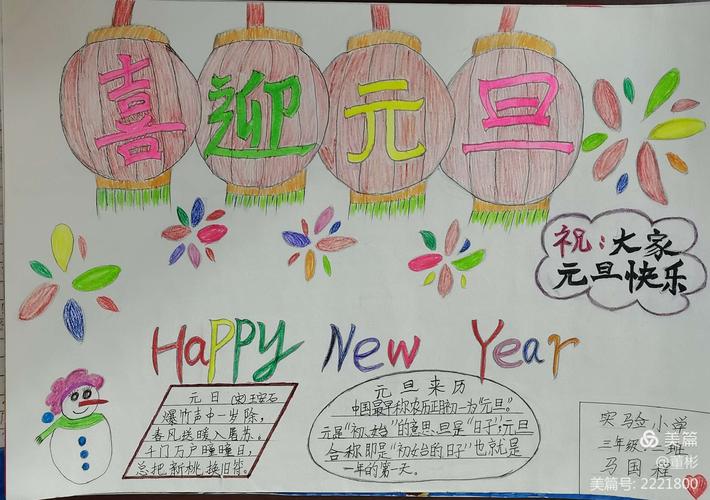 喜迎元旦
祝:大家
元旦快乐
Happy New Year
元日 (宋)王安石
爆竹声中一岁除,
春风送暖入屠苏。
千门万户曈曈日,
总把新桃换旧符。
元旦来历
中国最早称农历正月初一为“元旦”。
元是“初、始”的意思,旦是“日子”,元旦
合称即是“初始的日子”也就是
一年的第一天。
实验小学
三年级 二班
马国程
美篇
@董彬
美篇号: 2221800